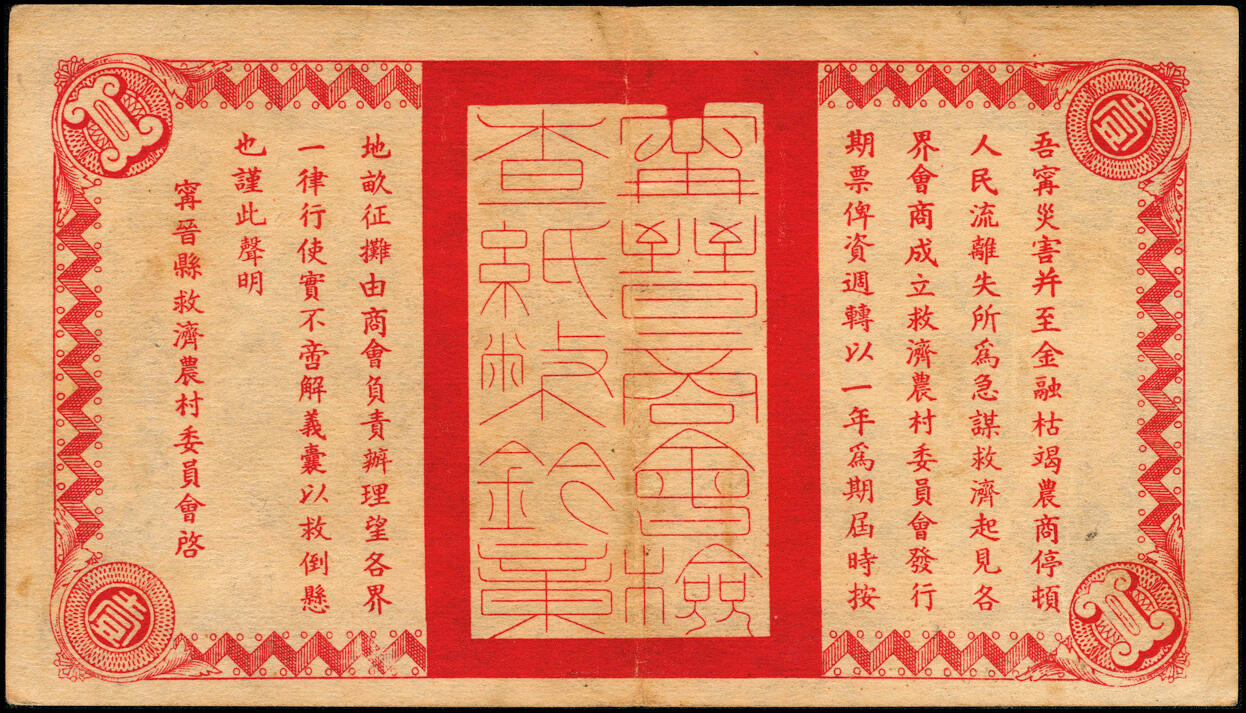 壹
吾甯災害并至金融枯竭農商停頓
人民流離失所爲急謀救濟起見各
界會商成立救濟農村委員會發行
期票俾資週轉以一年爲期屆時按
甯晉商會檢
查紙幣鈐章
地畝征攤由商會負責辦理望各界
一律行使實不啻解義囊以救倒懸
也謹此聲明
甯晉縣救濟農村委員會啓
1
1
壹